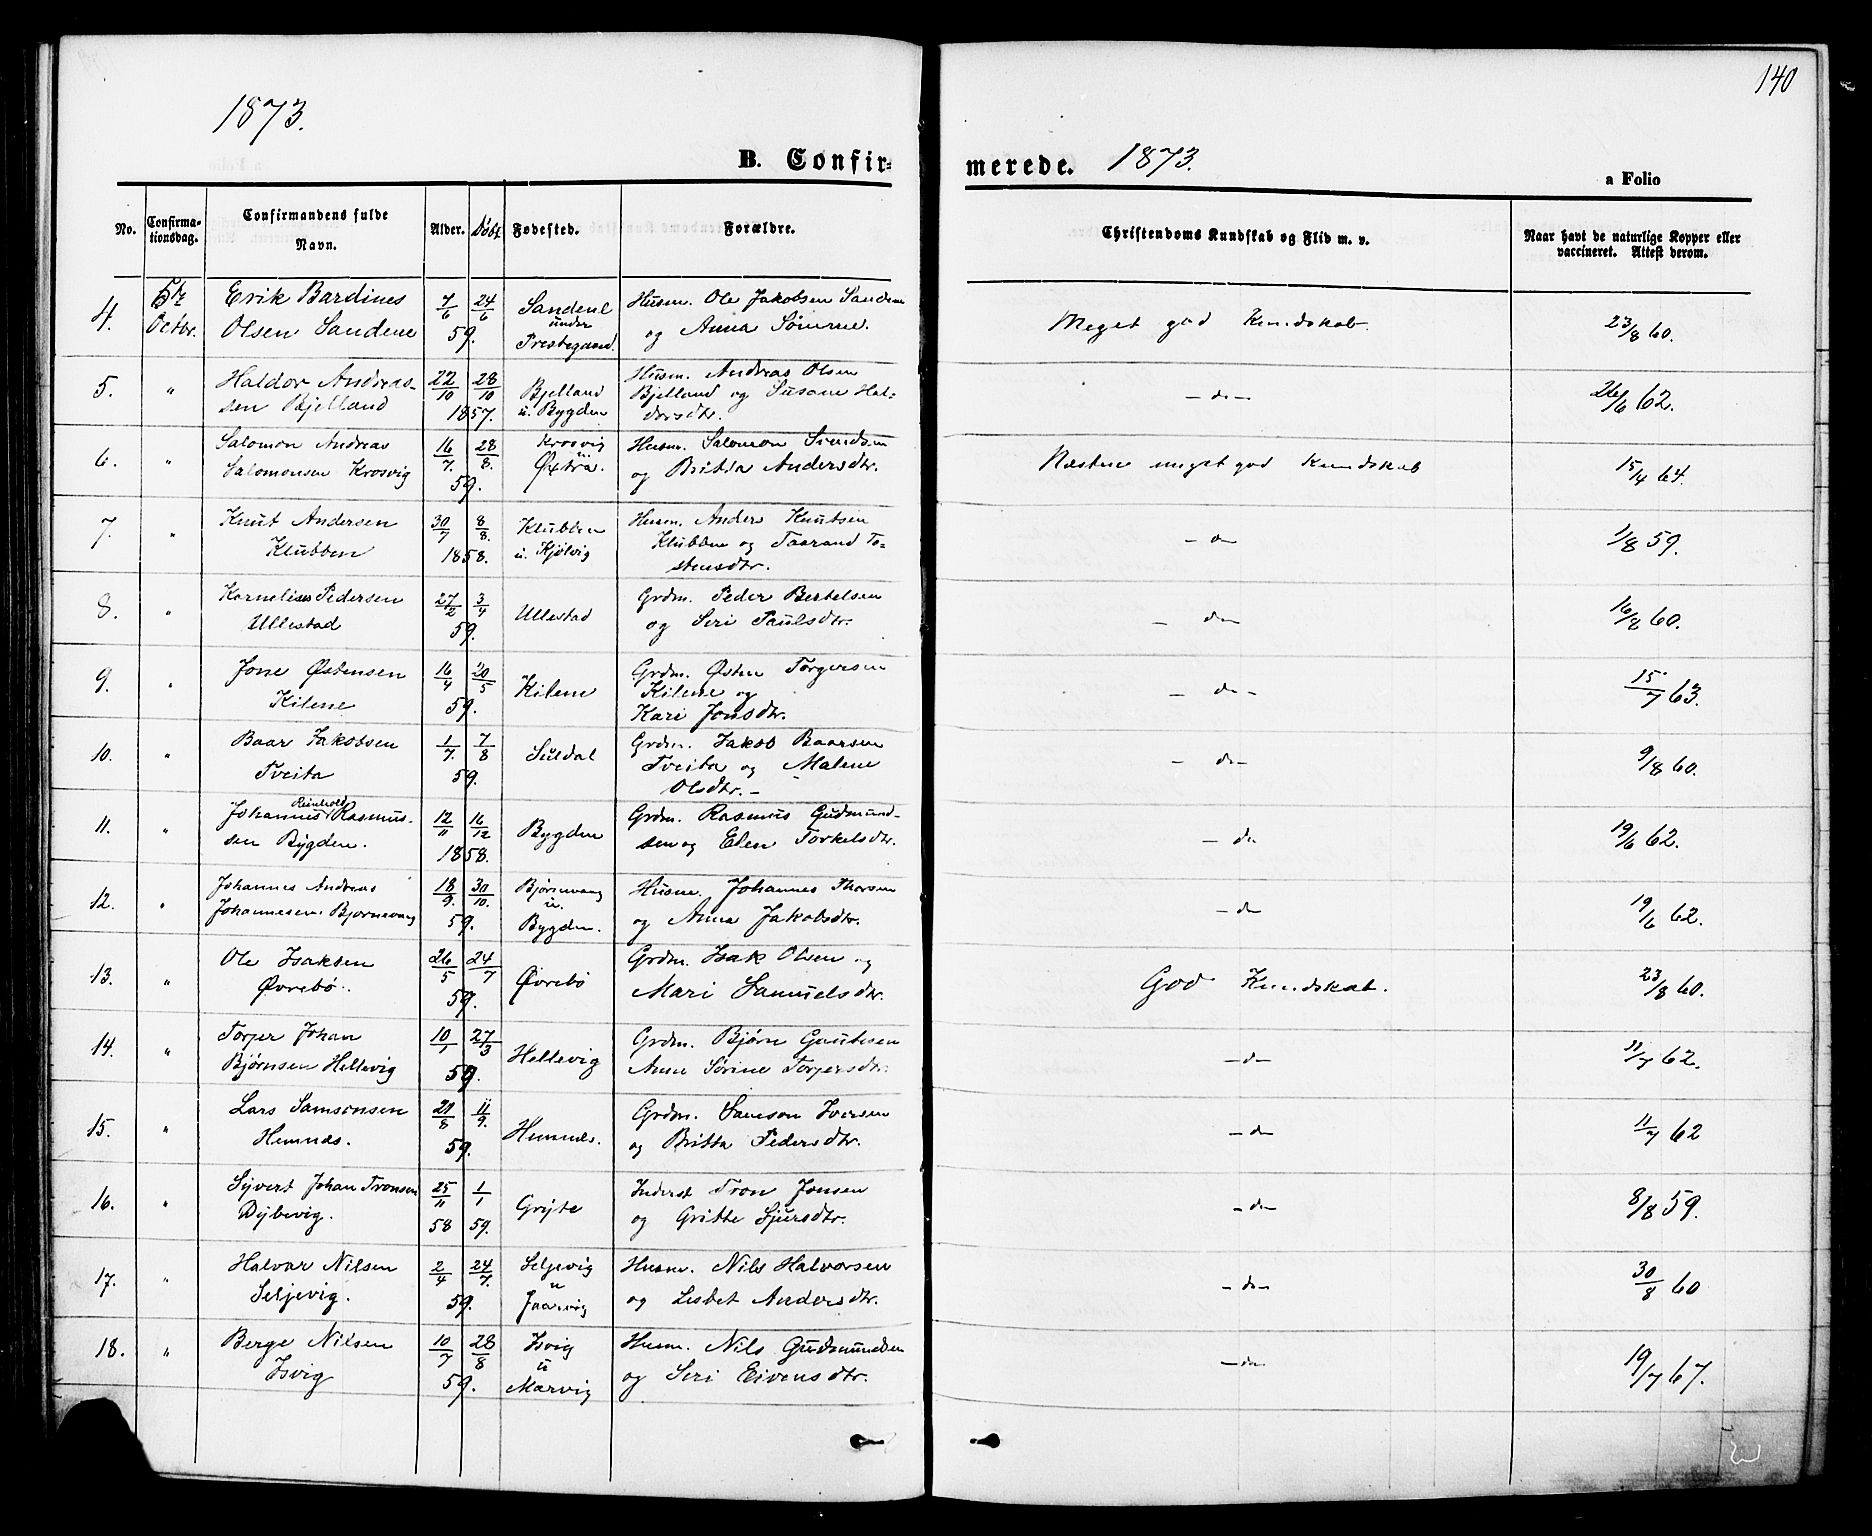 140
1873.
B. Confir-
merede. 1873.
a Folio
No.
Confirma-
tionsdag.
Confirmandens fulde
Navn.
Alder.
Døbt
Fødested.
Forældre.
Christendoms Kundskab og Flid m. v.
Naar havt de naturlige Kopper eller
vaccineret. Attest derom.
4. 5te Erik Bardines 7/6 24/6 Sandene Husm. Ole Jakobsen Sandene
Octbr. Olsen Sandene 59. under Prestegaard. og Anna Sørine. Meget god Kundskab. 23/8 60.
5. " Haldor Andreas- 22/10 28/10 Bjelland Husm. Andreas Olsen
sen Bjelland 1857. u. Bygden Bjelland og Susane Hal- - do - 26/6 62.
dorsdtr.
6. " Salomon Andreas 16/7. 28/8. Krosvig Husm. Salomon
Salomonsen Krosvig 59. u. Øxtra. og Britta Andersdtr. Næsten meget god Kundskab 15/4 64.
7. " Knut Andersen 30/7 8/8. Klubben Husm. Anders Knutsen
Klubben 1858. u. Kjølvig Klubben og Taarand To- - do 1/8 59.
stensdtr.
8. " Kornelius Pedersen 27/2 3/4 Ullestad Grdm. Peder Bertelsen
Ullestad 59. og Seri Paulsdtr. - do 16/8 60.
9. " Jone Østensen 16/4 20/5 Kilene Grdm. Østen Torgersen
Kilene 59. Kilene og - do - 15/7 63.
Kari Jonsdtr.
10. " Baar Jakobsen 1/7. 7/8 Suldal Grdm. Jakob Baarsen
Tveita 59. Tveita og Malene - do - 9/8 60.
Olsdtr. -
11. " Johannes Reinhold Rasmus- 12/11 16/12 Bygden Grdm. Rasmus Gudmund-
sen Bygden. 1858. sen og Elen Torkelsdtr. - do 19/6 62.
12. " Johannes Andreas 18/9. 30/10. Bjørnevang Husm. Johannes Thorsen
Johannesen Bjørnevang 59. u. Bygden. og Anna Jakobsdtr. - do 19/6 62.
13. " Ole Isaksen 26/5 24/7 Øvrebø Grdm. Isak Olsen og
Øvrebø. 59. Mari Samuelsdtr. God Kundskab. 23/8 60.
14. " Torjer Johan 10/1 27/3 Hellevig Grdm. Bjørn Gautesen
Bjørnsen Hellevig 59. Anne Sørine Torjersdtr. - do - 11/7 62.
15. " Lars Samsonsen 21/8 11/9. Hemnes. Grdm. Samson Iversen
Hemnes. 59. og Britta Pedersdtr. - do 11/7 62
16. " Syvert Johan Tronsen 25/11 1/1 Gryte Inderst Tron Jonsen
Dybevig. 58 59. og Gritte Sjursdtr. - do 8/8 59.
17. " Halvar Nilsen 2/4 24/7. Seljevig Husm. Nils Halvorsen
Seljevig. 59. u Jaarvig og Lisbet Andersdtr. - do - 30/8 60
18. " Berge Nilsen 10/7 28/8 Isvig Husm. Nils Gudmundsen
Isvig 59. u Marvig og Seri Eivensdtr. - do 19/7 67.